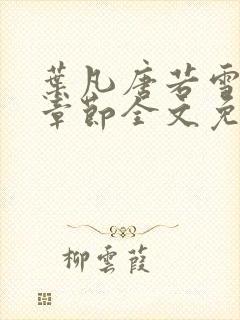 葉凡唐若雪
章節全文免
柳雲葭